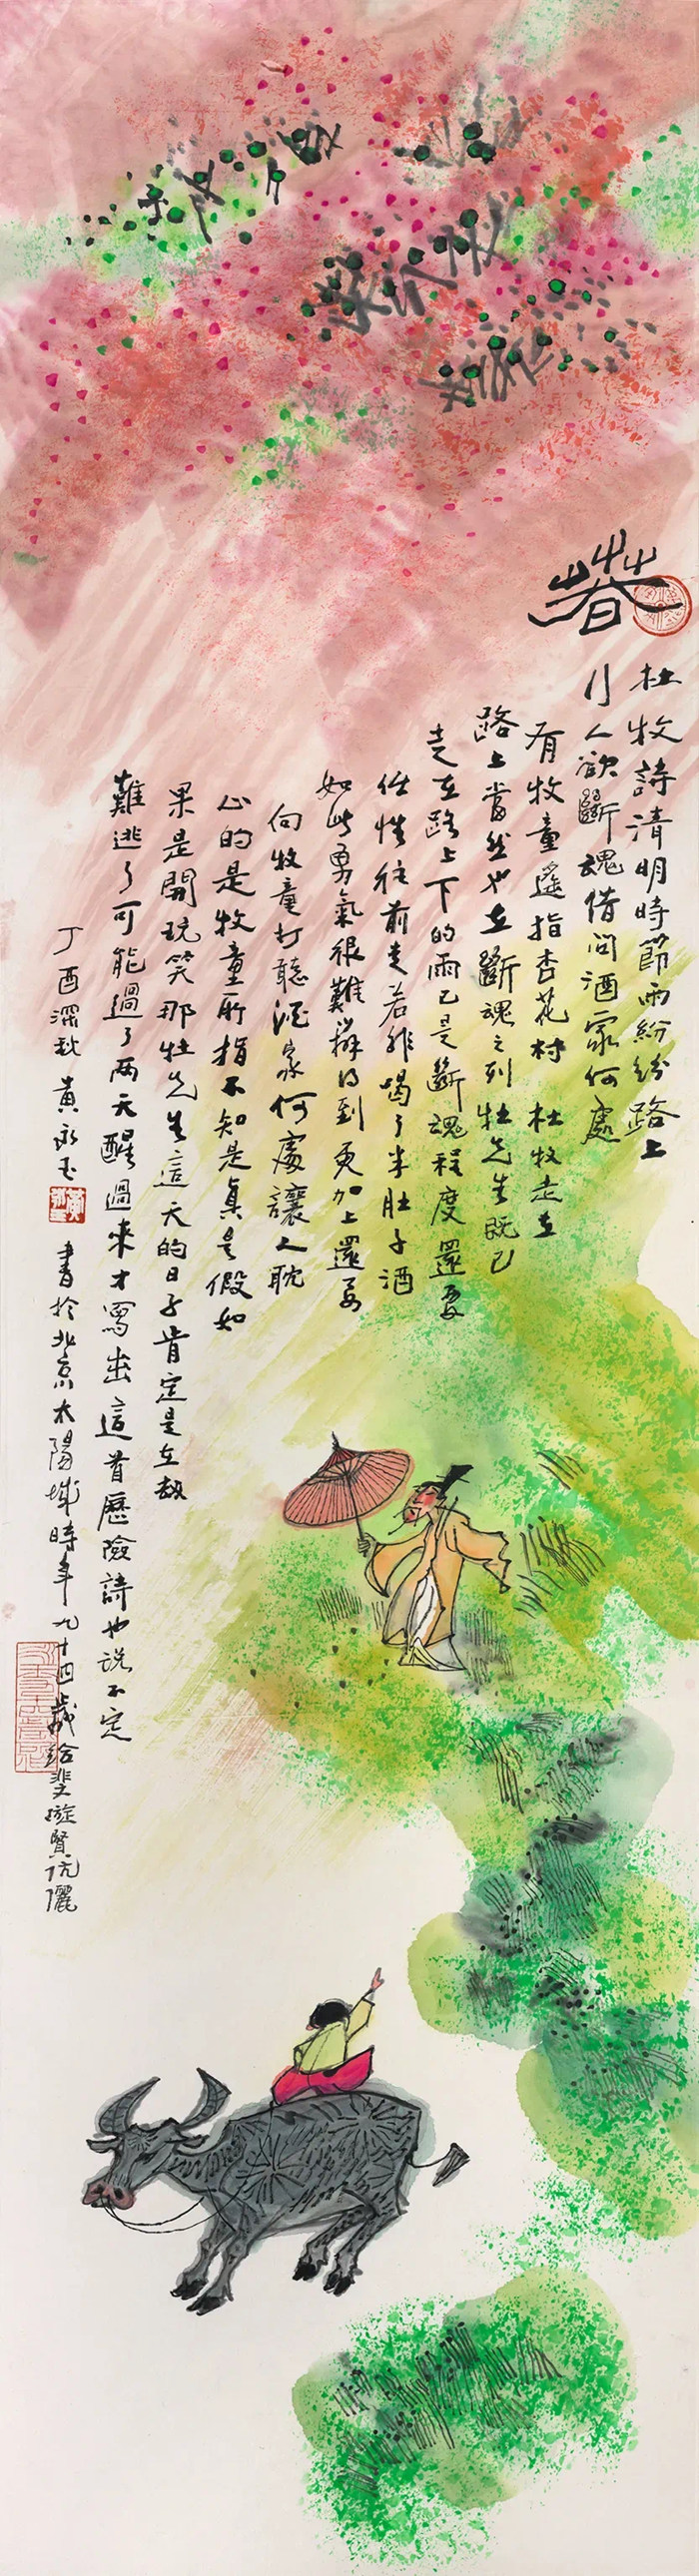 春
杜牧詩清明時節雨紛紛路上
行人欲斷魂借問酒家何處
有牧童遙指杏花村 杜牧走在
路上當然也在斷魂之列杜先生既已
走在路上下的雨已是斷魂程度還要
任性往前走若非喝了半肚子酒
如此勇氣很難辦得到更加上還要
向牧童打聽酒家何處讓人耽
心的是牧童所指不知是真是假如
果是開玩笑那杜先生這一天的日子肯定是在劫
難逃了可能過了兩天醒過來才寫出這首歷險詩也說不定
丁酉深秋 黃永玉 書於北京太陽城時年九十四歲 給斐璇賢伉儷